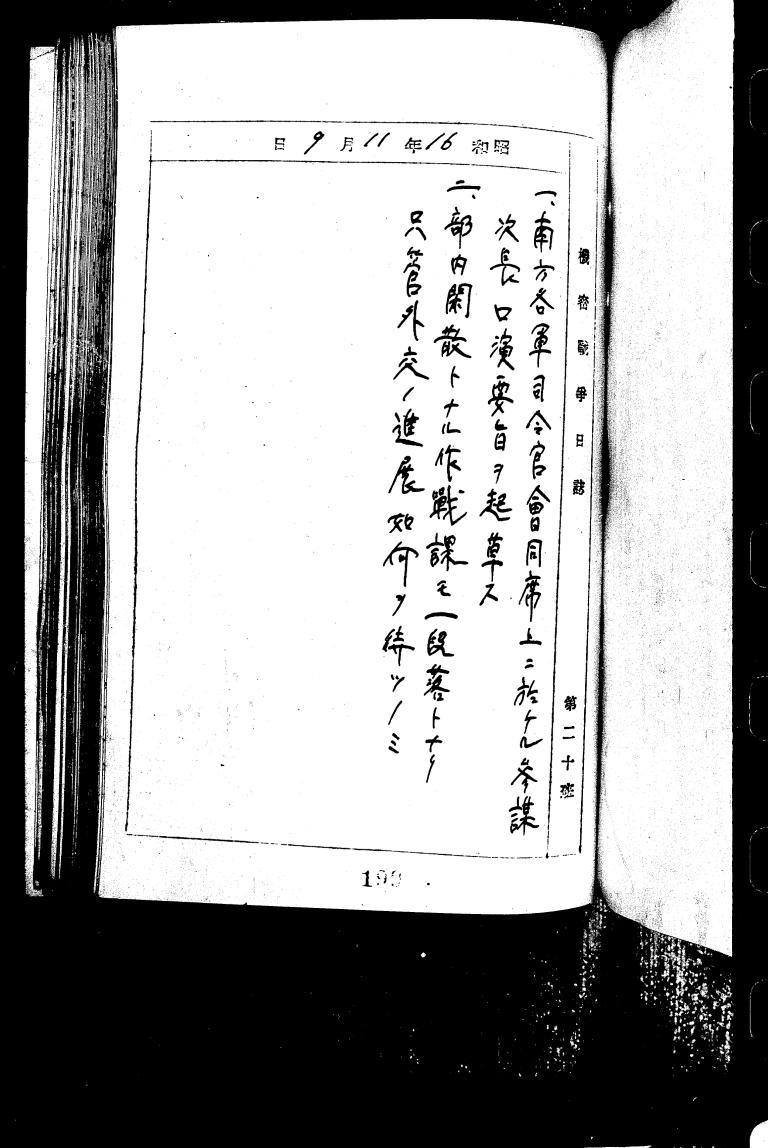 機密戰爭日誌
第二十班
昭和16年11月9日
一、南方各軍司令官會同席上ニ於ケル參謀
次長口演要旨ヲ起草ス
二、部内閑散トナル作戰課モ一段落トナリ
只管外交ノ進展如何ヲ待ツノミ